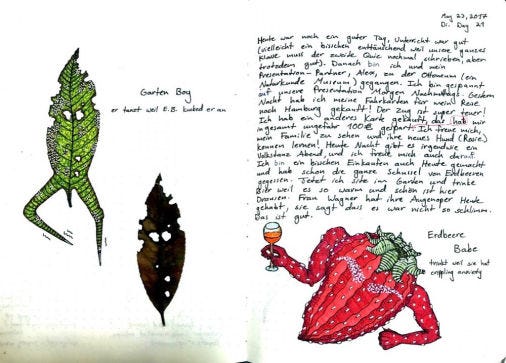 Garten Boy
er tanzt weil E.B. buked er an
May 23, 2017
Di. Day 21
Heute war noch ein guter Tag, Unterricht war gut
(vielleicht ein bischen enttäuschend weil unsere ganzes
Klasse muss der zweide Quiz nochmal schreiben, aber
trotzdem gut). Danach bin ich und mein
Presentation-Partner, Alex, zu der Ottoneum (ein
Naturkunde Museum) gegangen. Ich bin gespannt
auf unsere Presentation Morgen Nachmittags. Gestern
Nacht hab ich meine Fahrkarten für mein Reise
nach Hamburg gekauft! Der zug ist super teuer!
Ich hab ein anderes Karte gekauft, das hab mir
insgesamt ungefähr 100€ gespart. Ich freue mich,
mein Familie zu sehen und ihre neues Hund (Rosie)
kennen lernen! Heute Nacht gibt es irgendwie ein
Volkstanz Abend, und ich freue mich auch darauf.
Ich bin ein bischen Einkaufen auch Heute gemacht
und hab schon die ganze Schussel von Erdbeeren
gegessen. Jetzt ich sitze im Garten und trinke
Bier weil es so warm und schön ist hier
Draussen. Frau Wagner hat ihre Augenoper Heute
gehabt, sie sagt dass es war nicht so schlimm.
Das ist gut.
Erdbeere
Babe
trinkt weil sie hat
crippling anxiety